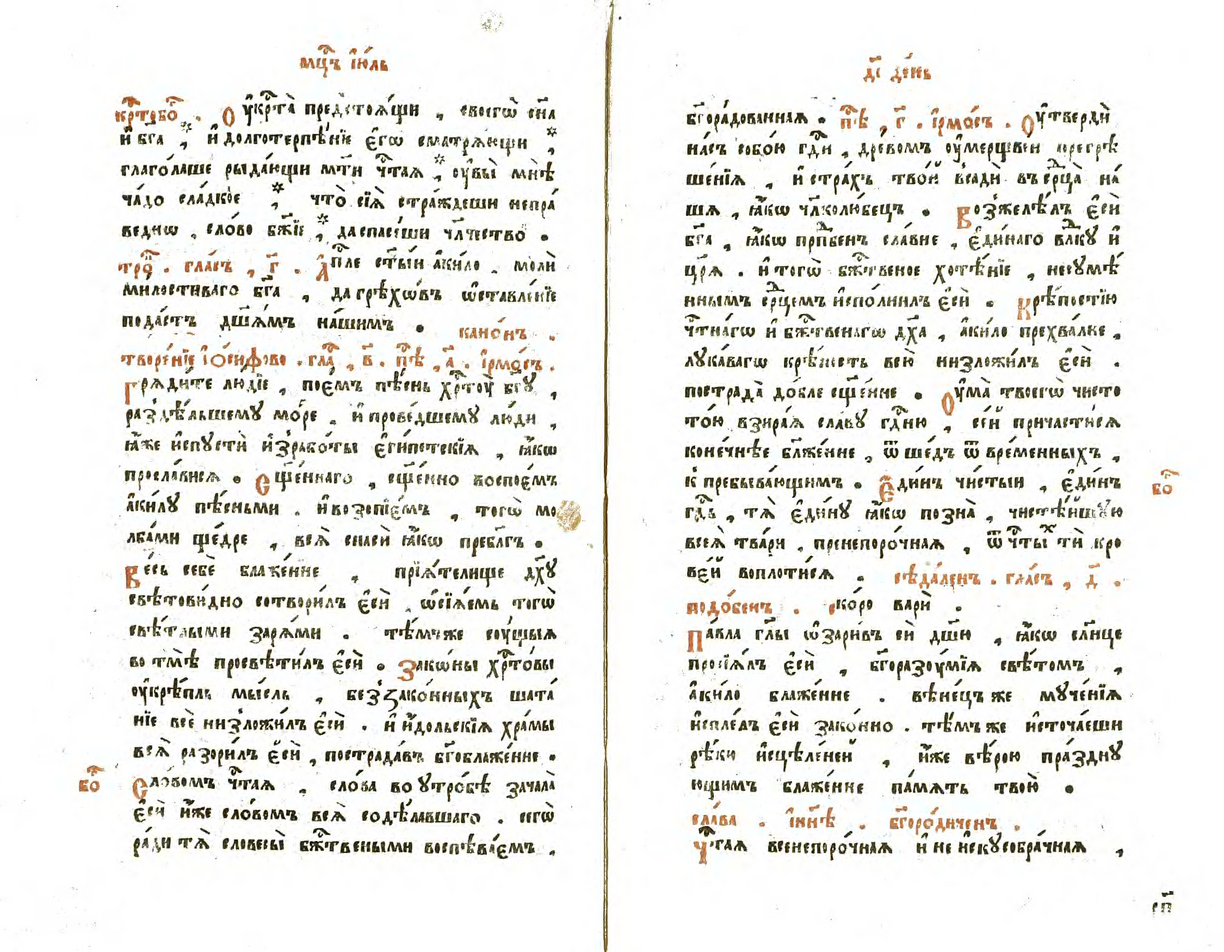 мцⷭ҇ъ і҆ю́ль
крⷭ҇тобоⷣ . Оу҆ крⷭ҇та̀ предстоѧ́щи , своегѡ̀ сн҃а
и҆ бг҃а * , и҆ долготерпѣ́нїе є҆гѡ̀ сматрѧ́ющи , *
глаго́лаше рыда́ющи мт҃и чⷭ҇таѧ , * оу҆вы̀ мнѣ̀
ча́до сла́дкое * , что̀ сїѧ̀ стра́ждеши непра́
ведно , сло́во бж҃їе , * да спасе́ши чл҃чество̀ .
троⷫ҇ . гла́съ , г҃ . А҆пⷭ҇ле ст҃ы́и а҆ки́ло . молѝ
милостиваго бг҃а , да грѣхѡ́въ ѡ҆ставле́нїе
пода́стъ дш҃ѧ́мъ на́шимъ . кано́нъ .
творе́нїе і҆ѡ́сифово . глаⷭ҇ , в҃ . пѣⷭ҇ , а҃ . і҆рмо́съ .
Грѧди́те лю́дїе , пое́мъ пѣ́снь хрⷭ҇тоу̀ бг҃ꙋ ,
раздѣ́льшемꙋ мо́ре , и҆ прове́дшемꙋ лю́ди ,
ꙗ҆́же и҆спꙋстѝ и҆зрабо́ты є҆ги́петскїѧ , ꙗ҆́кѡ
просла́висѧ . Сщ҃е́ннаго , сщ҃е́нно воспое́мъ
а҆ки́лꙋ пѣ́сньми . и҆ возопїе́мъ , тогѡ̀ мо
лба́ми ще́дре , всѧ̀ спасѝ ꙗ҆́кѡ пребл҃гъ .
Весь себѐ блаже́нне , прїѧ́телище дх҃ꙋ
свѣтови́дно сотвори́лъ є҆сѝ , ѡ҆сїѧ́емь тогѡ̀
свѣ́тлыми зарѧ́ми . тѣ́мъже сꙋ́щыѧ
во тмѣ̀ просвѣти́лъ є҆сѝ . Зако́ны хрⷭ҇то́вы
оу҆крѣ́пль мы́сль , беззако́нныхъ шата́
нїе всѐ низложи́лъ є҆сѝ . и҆ и҆́дольскїѧ хра́мы
всѧ̀ разори́лъ є҆сѝ , пострада́въ бг҃облаже́нне .
боⷣ Сло́вомъ чⷭ҇таѧ , сло́ва во ꙋтро́бѣ зачала̀
є҆сѝ и҆́же сло́вомъ всѧ̀ содѣ́лавшаго . сегѡ̀
ра́ди тѧ̀ словесы̀ бжⷭ҇твеными воспѣва́емъ .
д҃і де́нь
бг҃ора́дованнаѧ . пѣⷭ҇ , г҃ . і҆рмо́съ . Оу҆твердѝ
на́съ собо́ю гдⷭ҇и , дре́вомъ оу҆мерщве́и прегрѣ
ше́нїѧ , и҆ стра́хъ тво́й всадѝ въ срⷣца̀ на́
шѧ , ꙗ҆́кѡ чл҃колю́бецъ . Возжелѣ́лъ є҆сѝ
бг҃а , ꙗ҆́кѡ прпⷣбенъ сла́вне , є҆ди́наго влⷣкꙋ и҆
цр҃ѧ̀ . и҆ тогѡ̀ бжⷭ҇твеное хотѣ́нїе , несꙋмѣ́
ннымъ срⷣцемъ и҆спо́лнилъ є҆сѝ . Крѣ́постїю
чⷭ҇тна́гѡ и҆ бжⷭ҇твенагѡ дх҃а , а҆ки́ло прехва́лне ,
лꙋка́вагѡ крѣ́пость всю̀ низложи́лъ є҆сѝ .
пострада̀ до́бле сщ҃е́нне . Оу҆ма̀ твоегѡ̀ чисто
то́ю взира́ѧ сла́вꙋ гдⷭ҇ню , се́й причасти́сѧ
коне́чнѣе блаже́нне , ѿше́дъ ѿ вре́менныхъ ,
к пребыва́ющимъ . Є҆ди́нъ чи́стыи , є҆ди́нъ боⷣ
гдⷭ҇ь , тѧ̀ є҆ди́нꙋ ꙗ҆́кѡ позна̀ , чистѣ́йшꙋю
всеѧ̀ тва́ри , пренепоро́чнаѧ , ѿ чⷭ҇ты́хъ тѝ кро
ве́й воплоти́сѧ . сѣда́ленъ . гла́съ , д҃ .
подо́бенъ . ско́ро варѝ .
Па́вла гл҃ы ѡ҆зари́въ сѝ дш҃ю , ꙗ҆́кѡ сл҃нце
просїѧ́лъ є҆сѝ , бг҃оразꙋ́мїѧ свѣ́томъ ,
а҆ки́ло блаже́нне . вѣне́цъ же мꙋче́нїѧ
и҆спле́лъ є҆сѝ зако́нно . тѣ́мъ же и҆сточа́еши
рѣ́ки и҆сцѣле́ней , и҆́же вѣ́рою пра́зднꙋ
ющимъ блаже́нне па́мѧть твою̀ .
сла́ва . и҆ ны́нѣ . бг҃оро́диченъ .
Чⷭ҇таѧ всенепоро́чнаѧ и҆ не и҆скꙋсобра́чнаѧ ,
сп҃